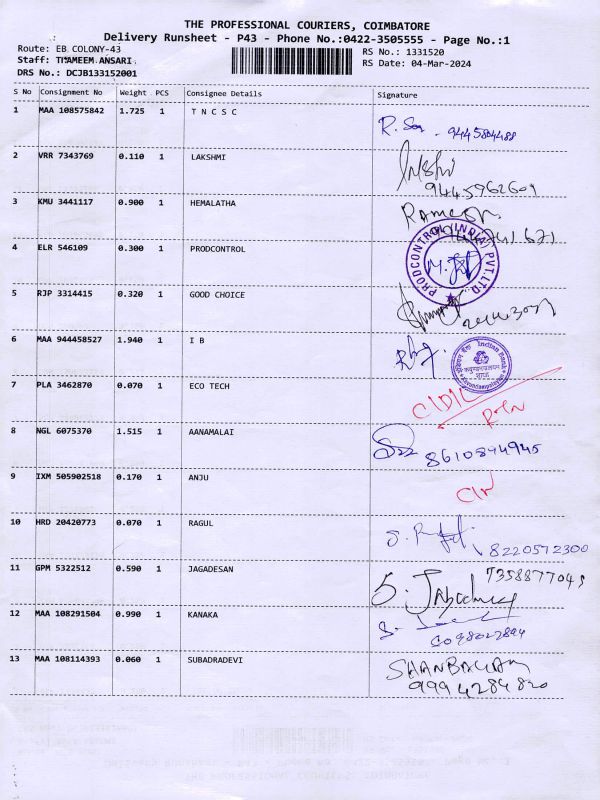 THE PROFESSIONAL COURIERS, COIMBATORE
Delivery Runsheet - P43 - Phone No.:0422-3505555 - Page No.:1
Route: EB COLONY-43
RS No.: 1331520
Staff: THAMEEM ANSARI
RS Date: 04-Mar-2024
DRS No.: DCJB133152001
S No Consignment No Weight PCS Consignee Details Signature
1 MAA 108575842 1.725 1 T N C S C
9445804488
2 VRR 7343769 0.110 1 LAKSHMI
9445962609
3 KMU 3441117 0.900 1 HEMALATHA
RAMESH
4 ELR 546109 0.300 1 PRODCONTROL
PRODCONTROL (INDIA) PVT.LTD
5 RJP 3314415 0.320 1 GOOD CHOICE
6 MAA 944458527 1.940 1 I B
Indian Bank
7 PLA 3462870 0.070 1 ECO TECH
8 NGL 6075370 1.515 1 AANAMALAI
8610894945
9 IXM 505902518 0.170 1 ANJU
10 HRD 20420773 0.070 1 RAGUL
8220572300
11 GPM 5322512 0.590 1 JAGADESAN
12 MAA 108291504 0.990 1 KANAKA
13 MAA 108114393 0.060 1 SUBADRADEVI
9994284820